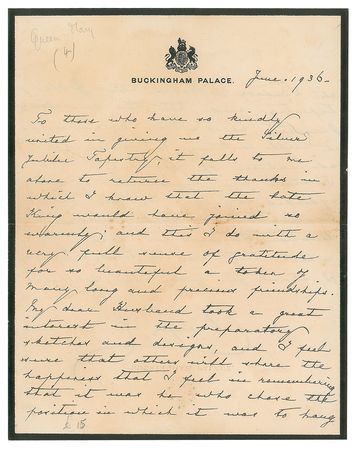 Queen Mary
(4)
BUCKINGHAM PALACE.
June. 1936_
To those who have so kindly
united in giving me the Silver
Jubilee Tapestry, it falls to me
alone to return the thanks in
which I know that the late
King would have joined so
warmly; and this I do with a
very full sense of gratitude
for so beautiful a token of
many long and precious friendships.
My dear Husband took a great
interest in the preparatory
sketches and designs, and I feel
sure that others will share the
happiness that I feel in remembering
that it was he who chose the
position in which it was to hang
£ 15